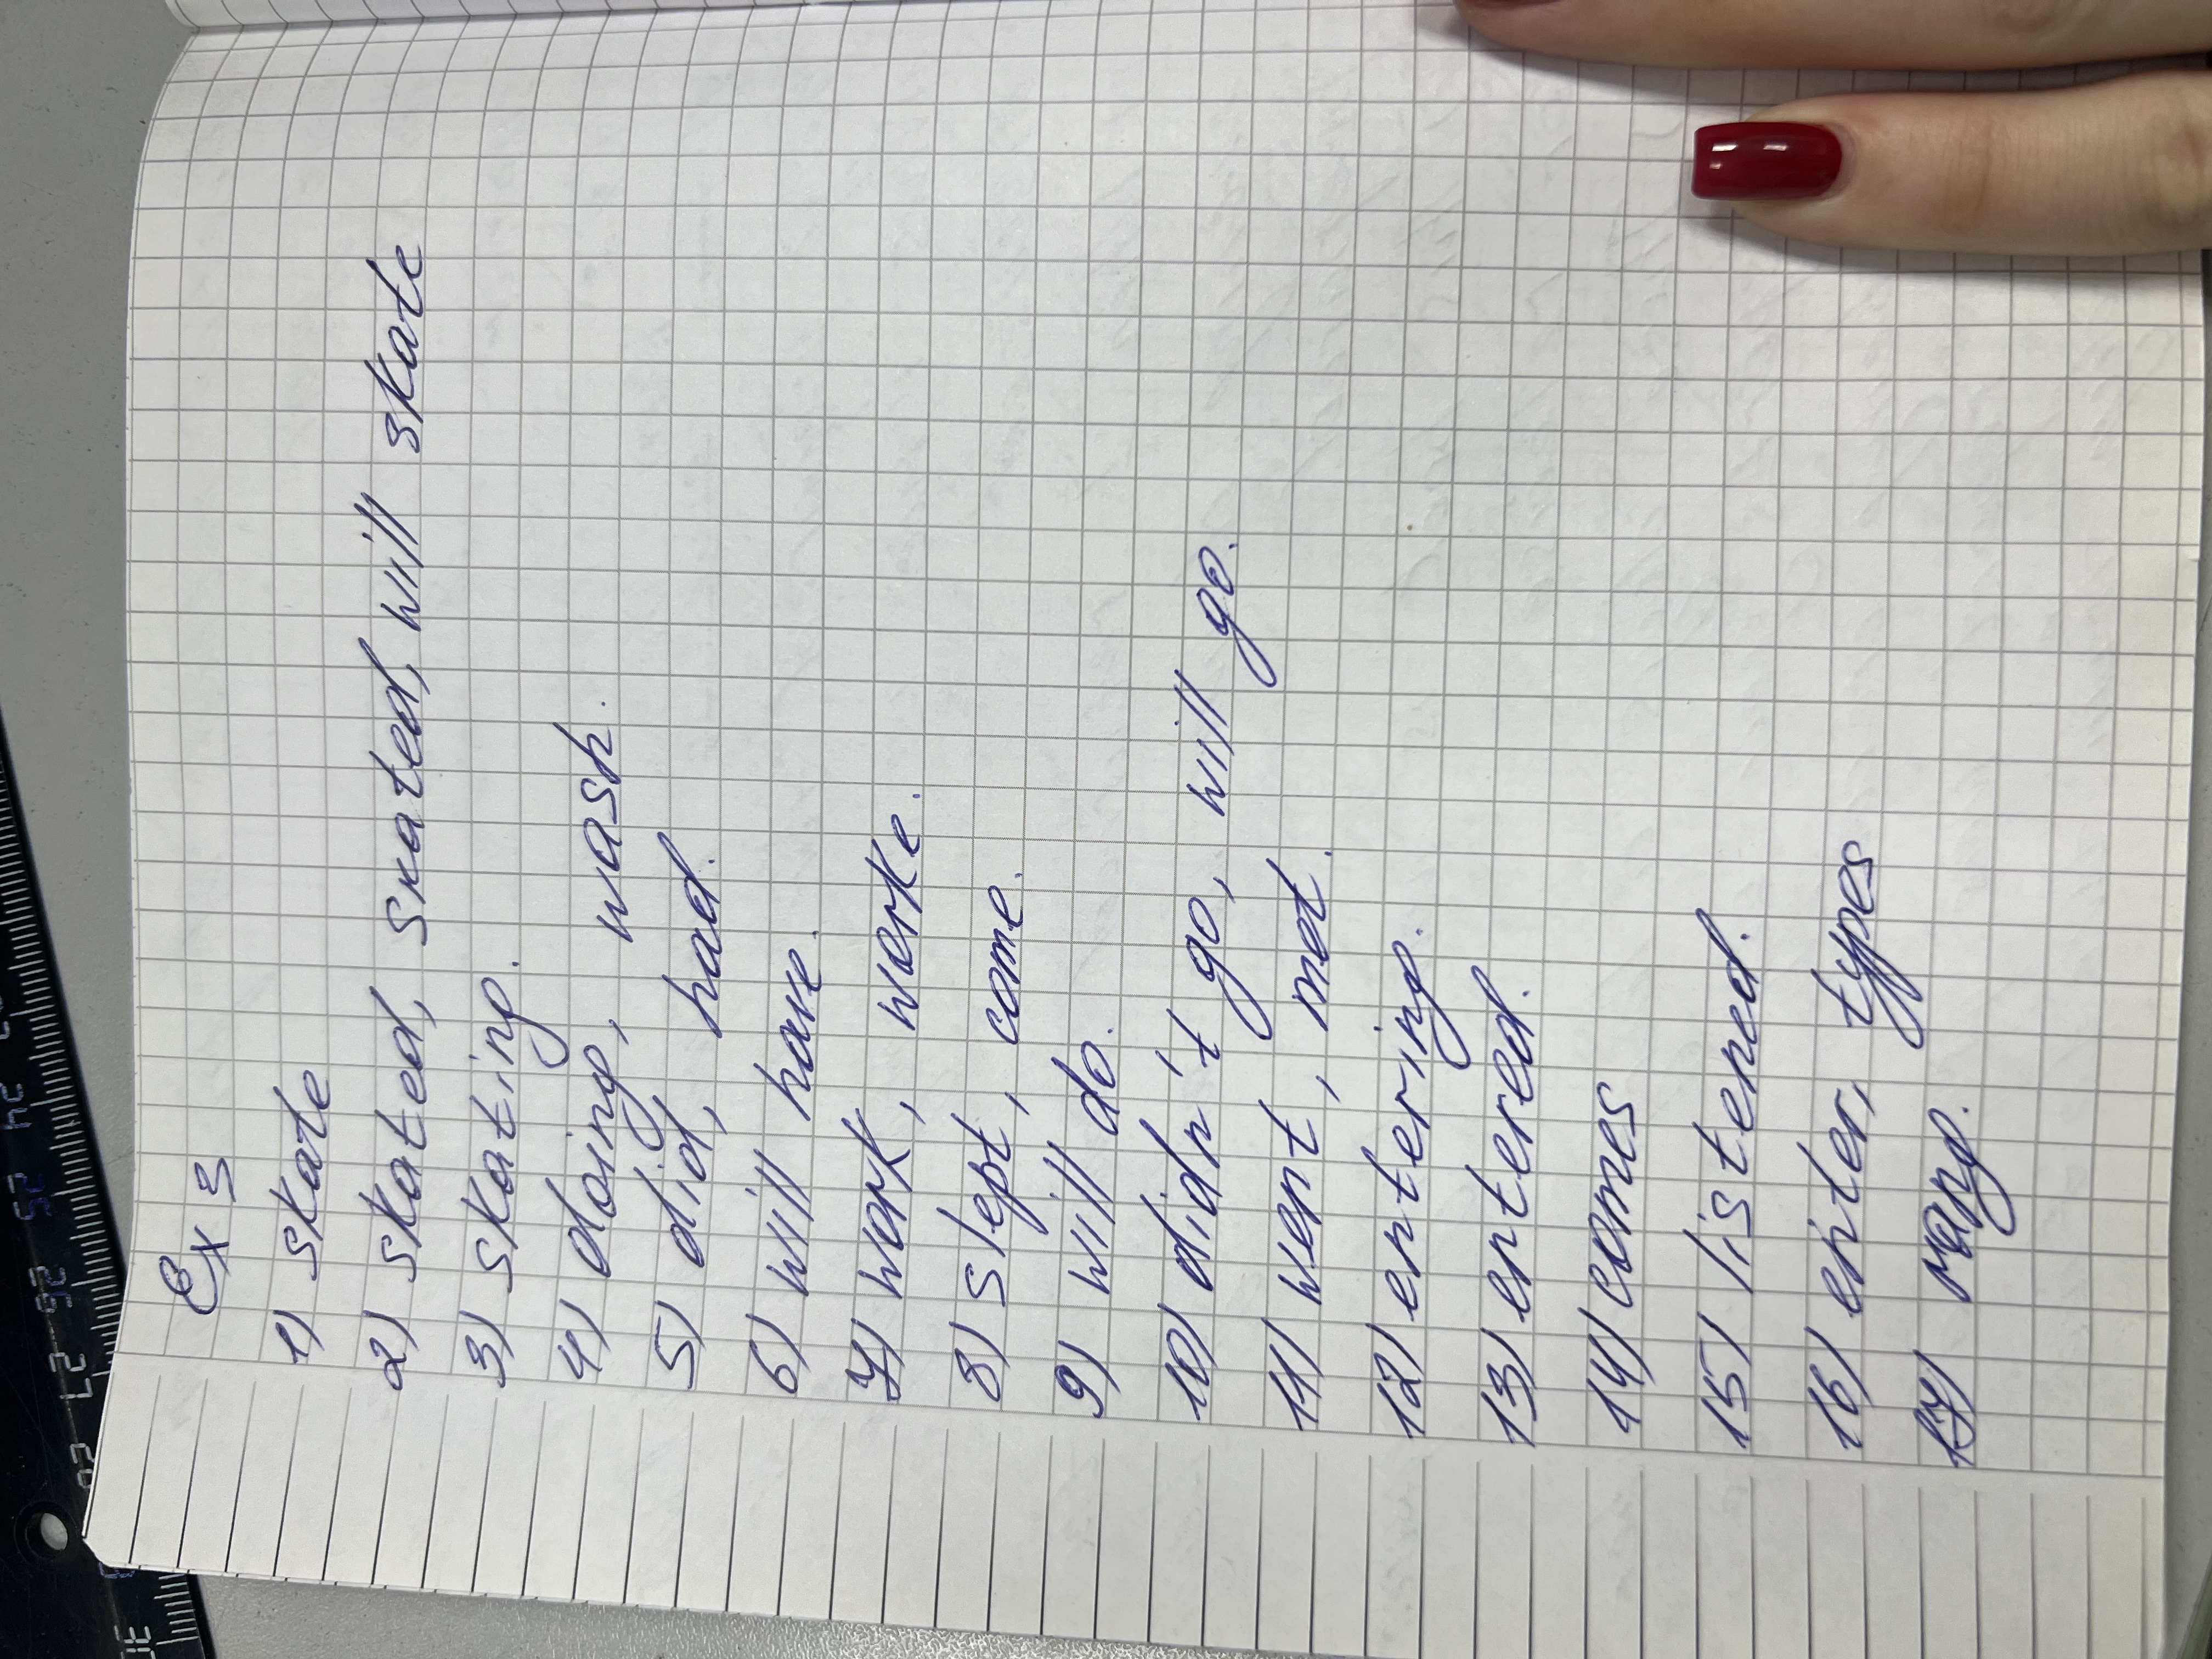 Ex 3
1) skate
2) skated, skated, will skate
3) skating.
4) doing, wash.
5) did, had.
6) will have.
7) work, worke.
8) slept, come.
9) will do.
10) didn't go, will go.
11) went, met.
12) entering.
13) entered.
14) comes
15) listened.
16) enter, types
17) rang.
24 25 26 27